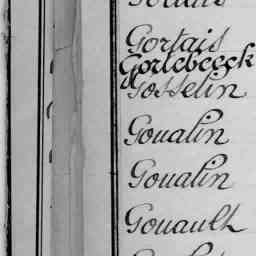 Gortais
Gorlebeeck
Gosselin
Goualin
Goualin
Gouault